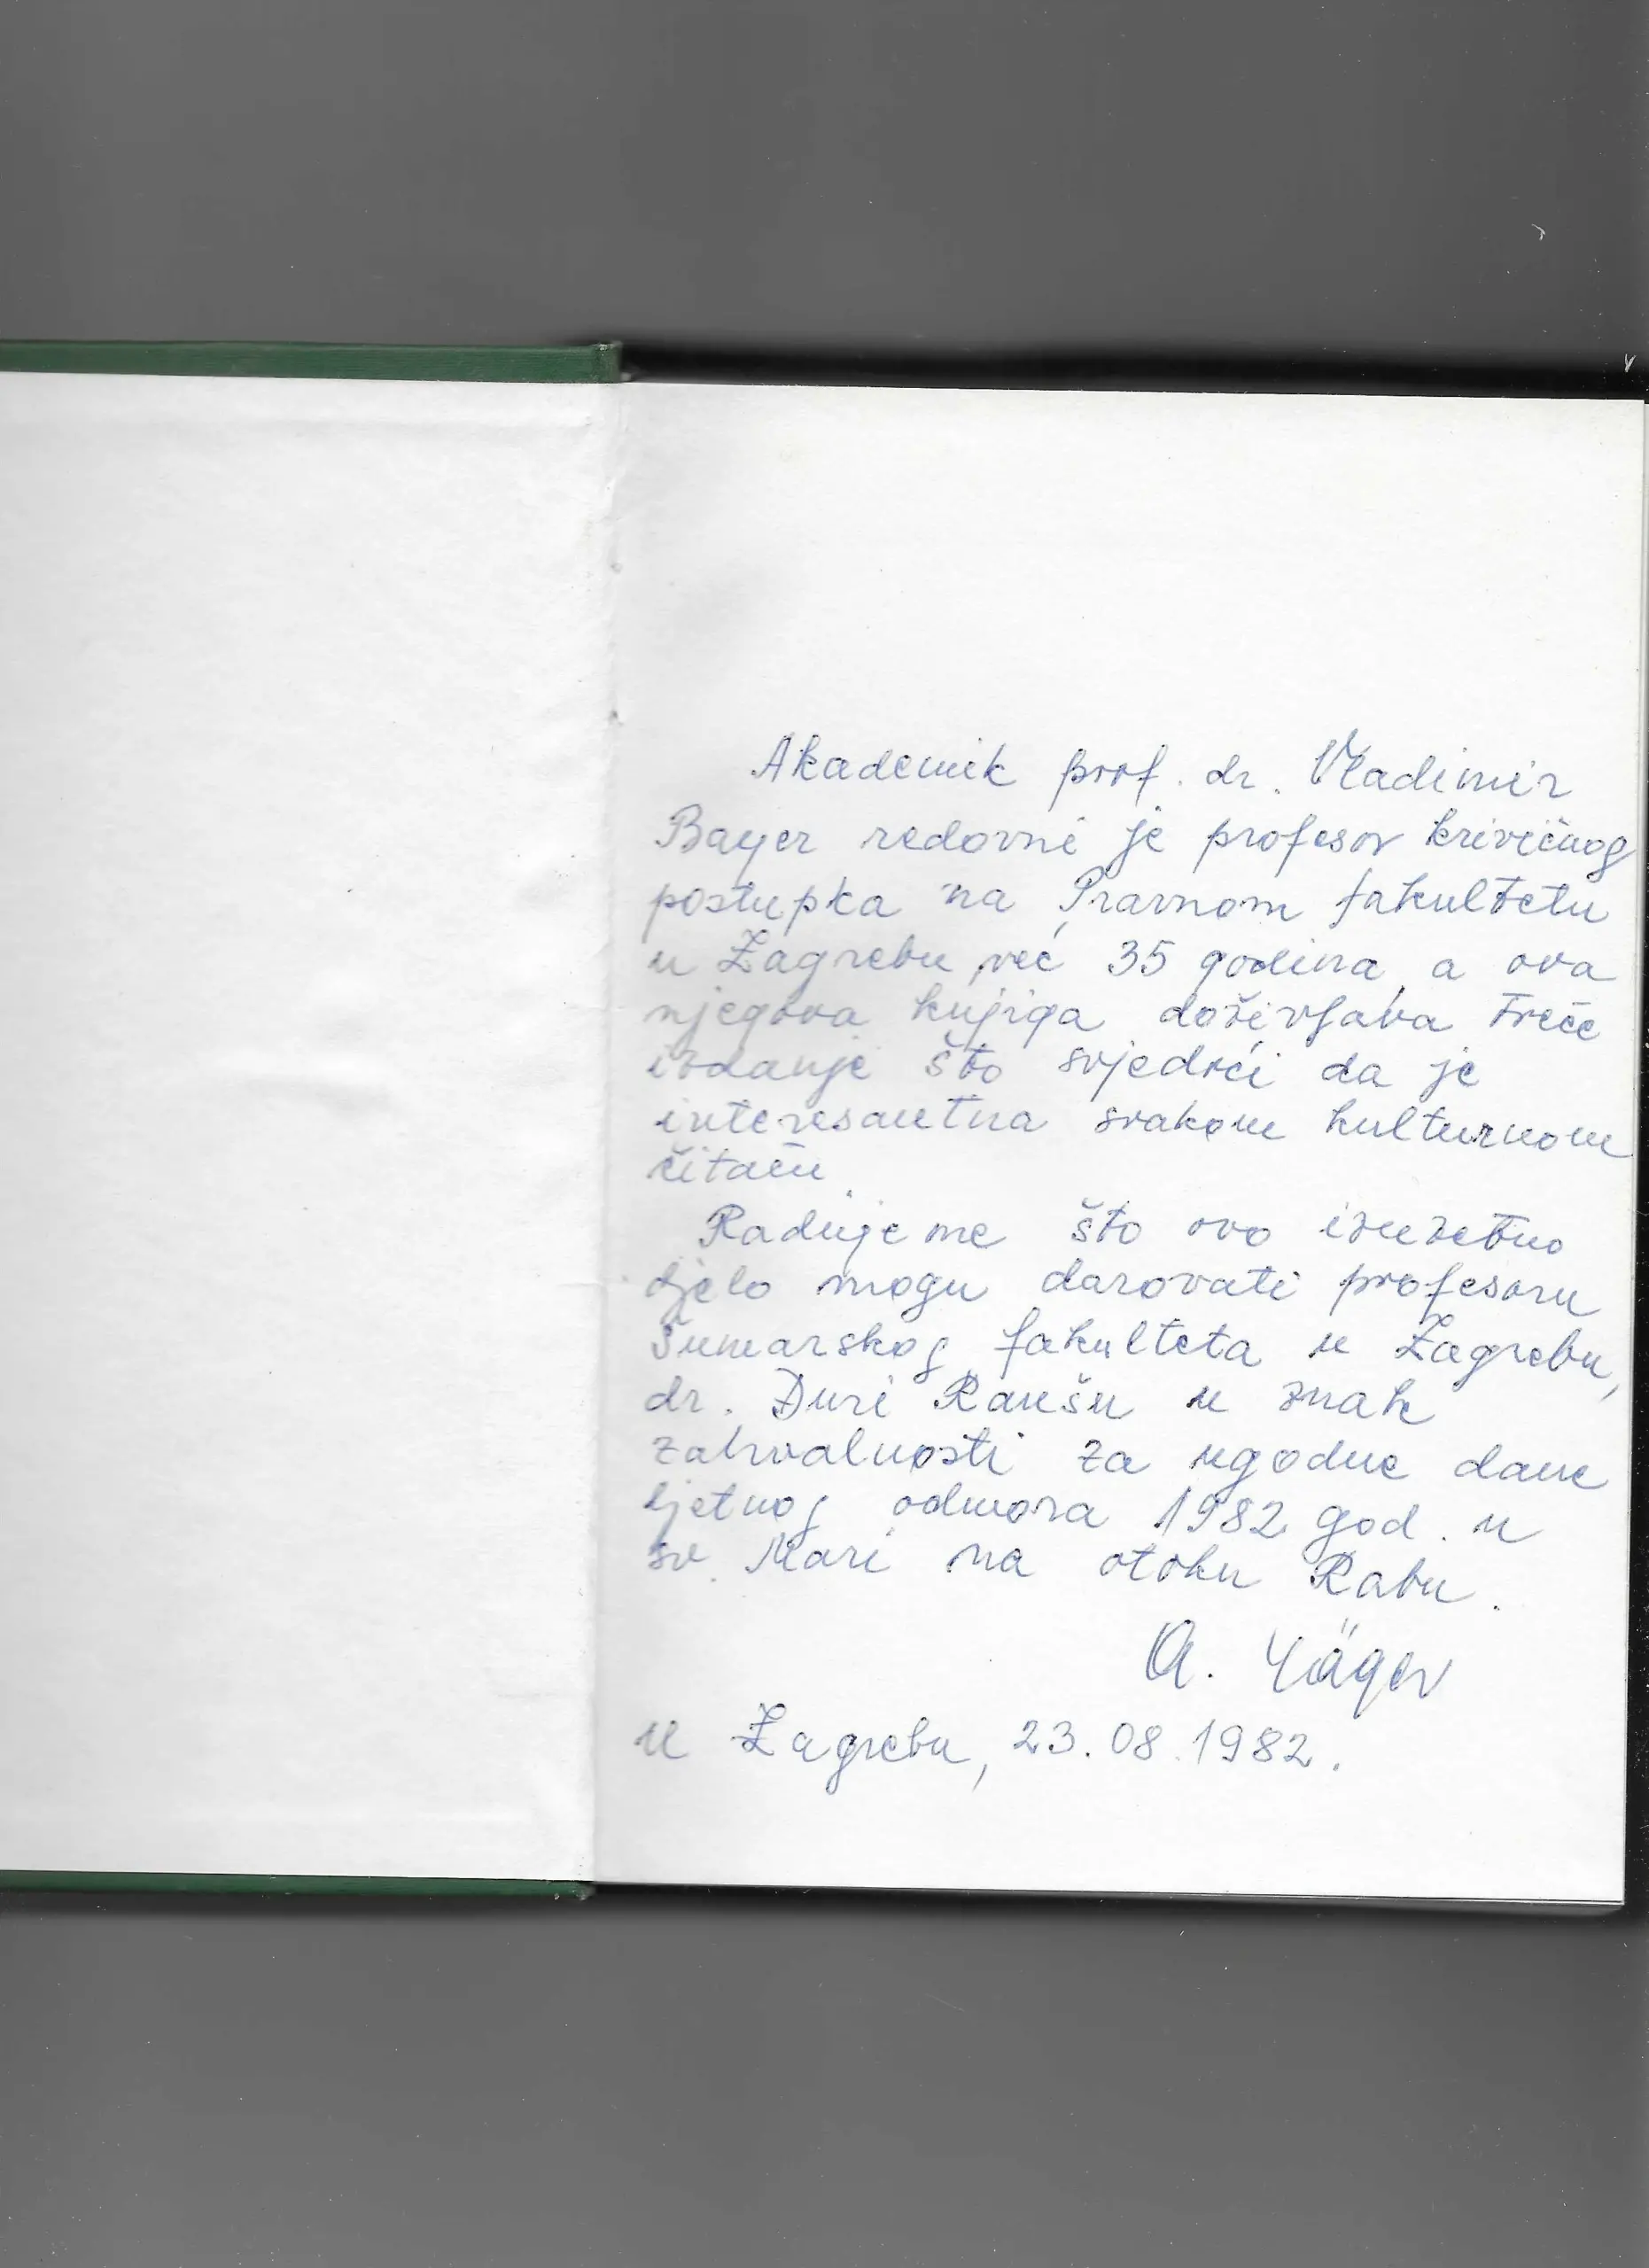 Akademik prof. dr. Vladimir
Bayer redovni je profesor krivičnog
postupka na Pravnom fakultetu
u Zagrebu već 35 godina, a ova
njegova knjiga doživljava treće
izdanje što svjedoči da je
interesantna svakom kulturnom
čitaču.
Raduje me što ovo izuzetno
djelo mogu darovati profesoru
Šumarskog fakulteta u Zagrebu,
dr. Đuri Raušu u znak
zahvalnosti za ugodne dane
ljetnog odmora 1982 god. u
sv. Mari na otoku Rabu.
A. Jäger
u Zagrebu, 23.08.1982.